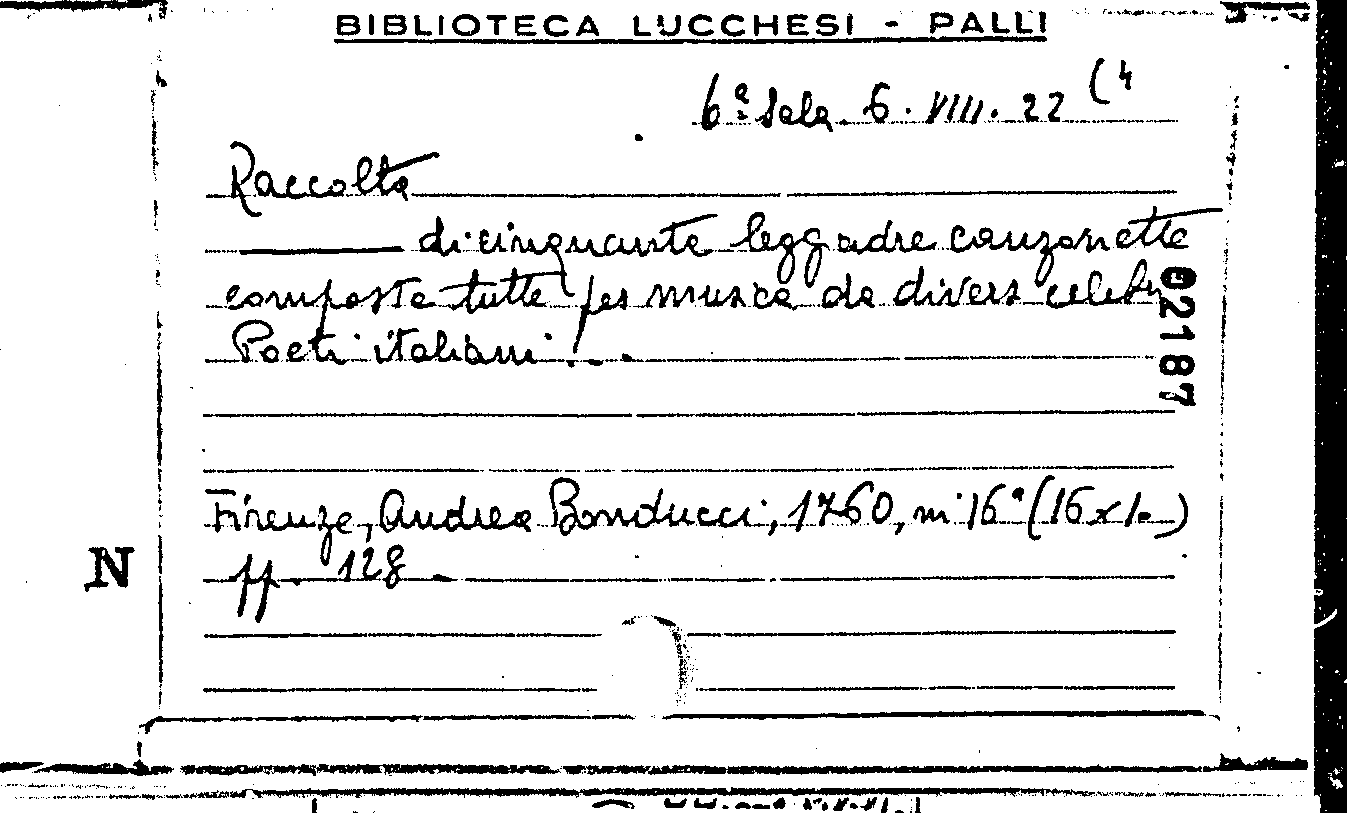 BIBLIOTECA LUCCHESI - PALLI
6ª Sala. 6. VIII. 22 (4
Raccolta
di cinquanta leggadre canzonette
composte tutte per musica da diversi celebri
Poeti italiani...
02187
Firenze, Andrea Bonducci, 1760, in 16° (16x10)
N
pp. 128